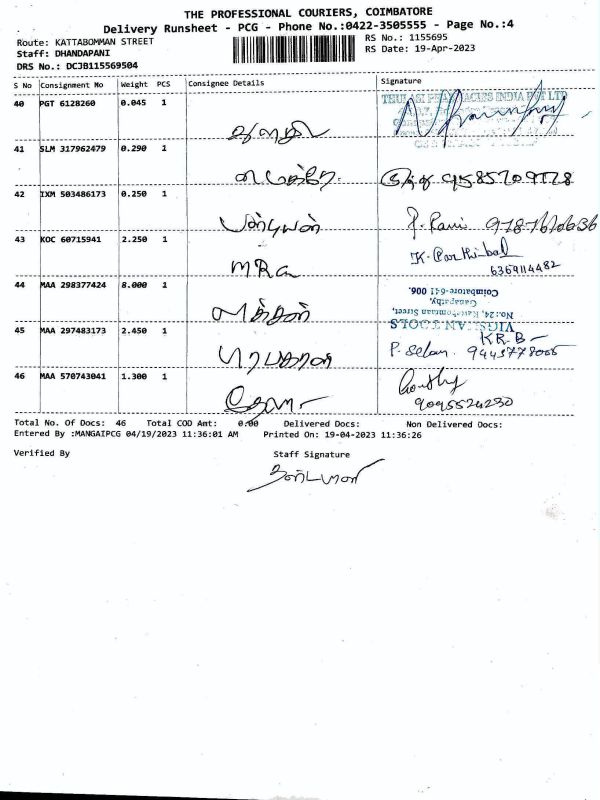 THE PROFESSIONAL COURIERS, COIMBATORE
Delivery Runsheet - PCG - Phone No.:0422-3505555 - Page No.:4
Route: KATTABOMMAN STREET
RS No.: 1155695
Staff: DHANDAPANI
RS Date: 19-Apr-2023
DRS No.: DCJB115569504
S No Consignment No Weight PCS Consignee Details Signature
40 PGT 6128260 0.045 1
THULASI PHARMACIES INDIA PVT LTD
துளசி
41 SLM 317962479 0.290 1
9585709778
42 IXM 503486173 0.250 1
பாண்டியன் P. Pavi 9787670636
43 KOC 60715941 2.250 1
MRC K. Parthibal
6369114482
44 MAA 298377424 8.000 1
No.: 24, Kattabomman Street,
Ganapathy,
Coimbatore-641 006.
45 MAA 297483173 2.450 1
VIGILVANT TOOLS
KR.B
பிரபாகரன் P. Selan. 9445778006
46 MAA 570743041 1.300 1
Gouthy
9095524230
Total No. Of Docs: 46 Total COD Amt: 0.00 Delivered Docs: Non Delivered Docs:
Entered By :MANGAIPCG 04/19/2023 11:36:01 AM Printed On: 19-04-2023 11:36:26
Verified By Staff Signature